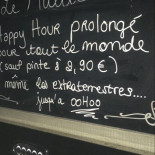 Happy Hour prolongé
pour tout le monde
(sauf pinte à 2,90 €)
même les extraterrestres....
jusqu'à 00H00